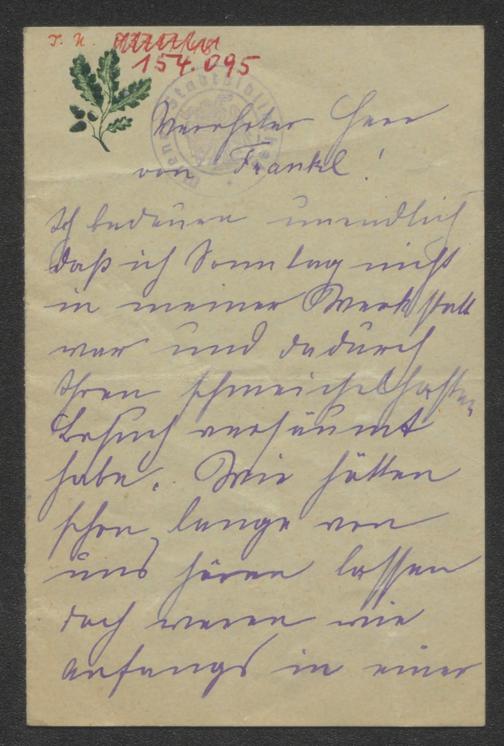 I. N.
154.095
Wiener Stadtbibliothek
Verehrter Herr
von Frankl!
Ich bedauere unendlich
daß ich Sonntag nicht
in meiner Werkstatt
war und dadurch
Ihren schmeichelhaften
Besuch versäumt
habe. Wir hätten
schon lange von
uns hören lassen
doch waren wir
anfangs in einer